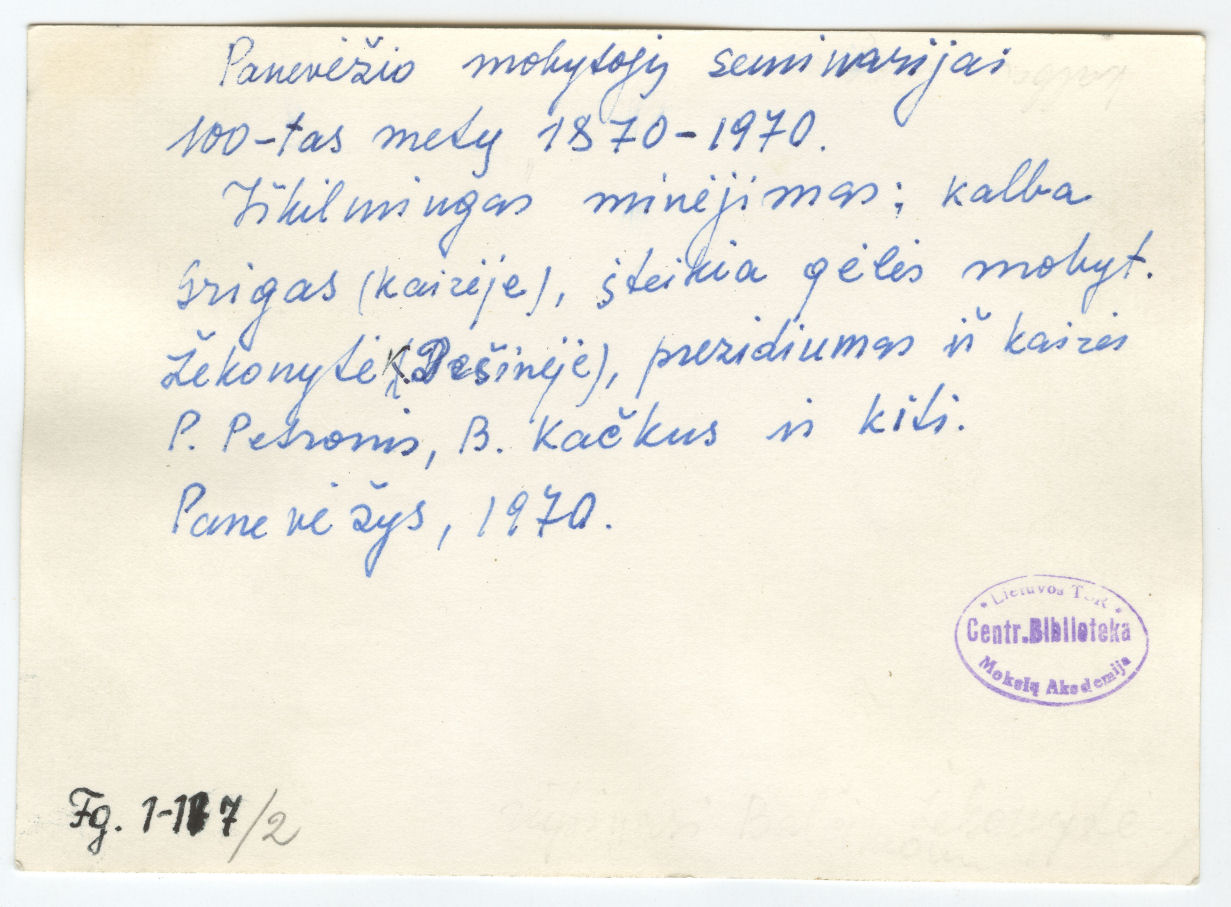 Panevėžio mokytojų seminarijai
100-tas metų 1870-1970.
Iškilmingas minėjimas; kalba
Grigas (kairėje), įteikia gėlės mokyt.
Žekonytė K. (Dešinėje), prezidiumas iš kairės
P. Petronis, B. Kačkus ir kiti.
Panevėžys, 1970.
Lietuvos TSR
Centr. Biblioteka
Mokslų Akademija
Fg. 1-117/2